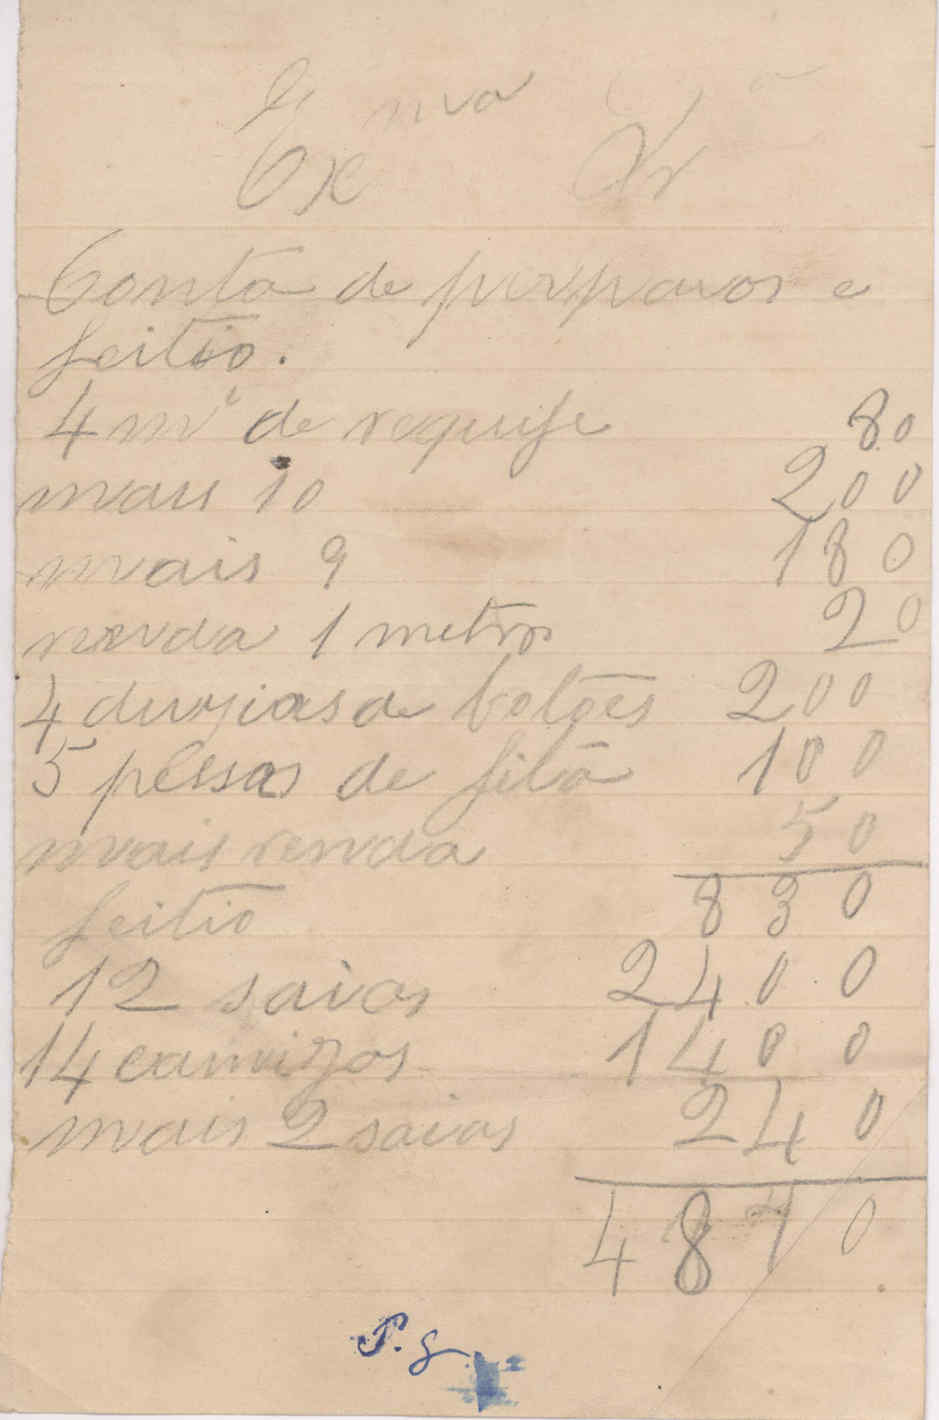 Exma Sra
Conta de perparos e
feitio.
4 m.s de requife 80
mais 10 200
mais 9 180
renda 1 metro 20
4 duzias de botões 200
5 pessas de fita 100
mais renda 50
830
feitio
12 saias 2400
14 camizas 1400
mais 2 saias 240
4870
P. g